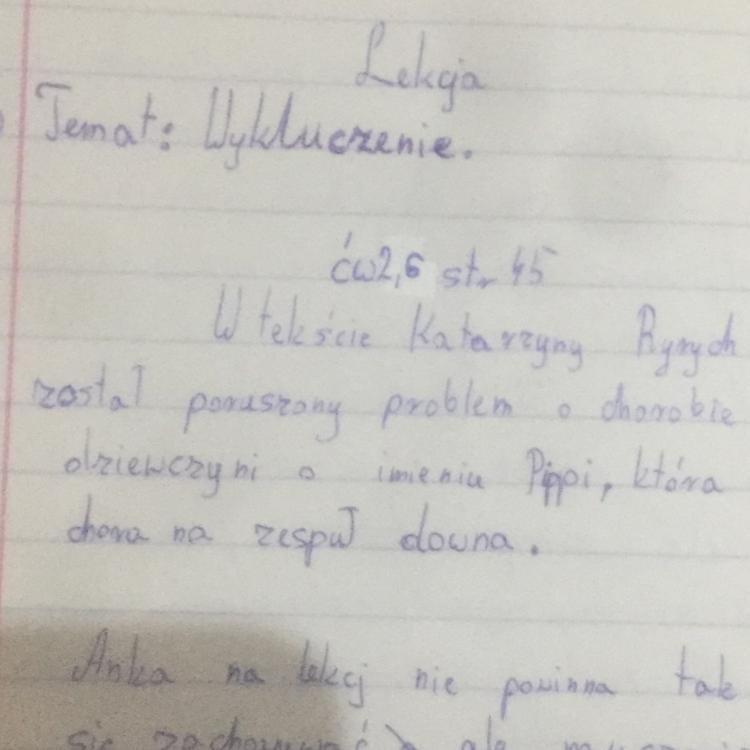 Lekcja
Temat: Wykluczenie.
ćw2,6 str 45
W tekście Katarzyny Ryrych
został poruszony problem o chorobie
dziewczyni o imieniu Pippi, która
chora na zespuł downa.
Anka na lekcj nie powinna tak
się zachowywać, ale